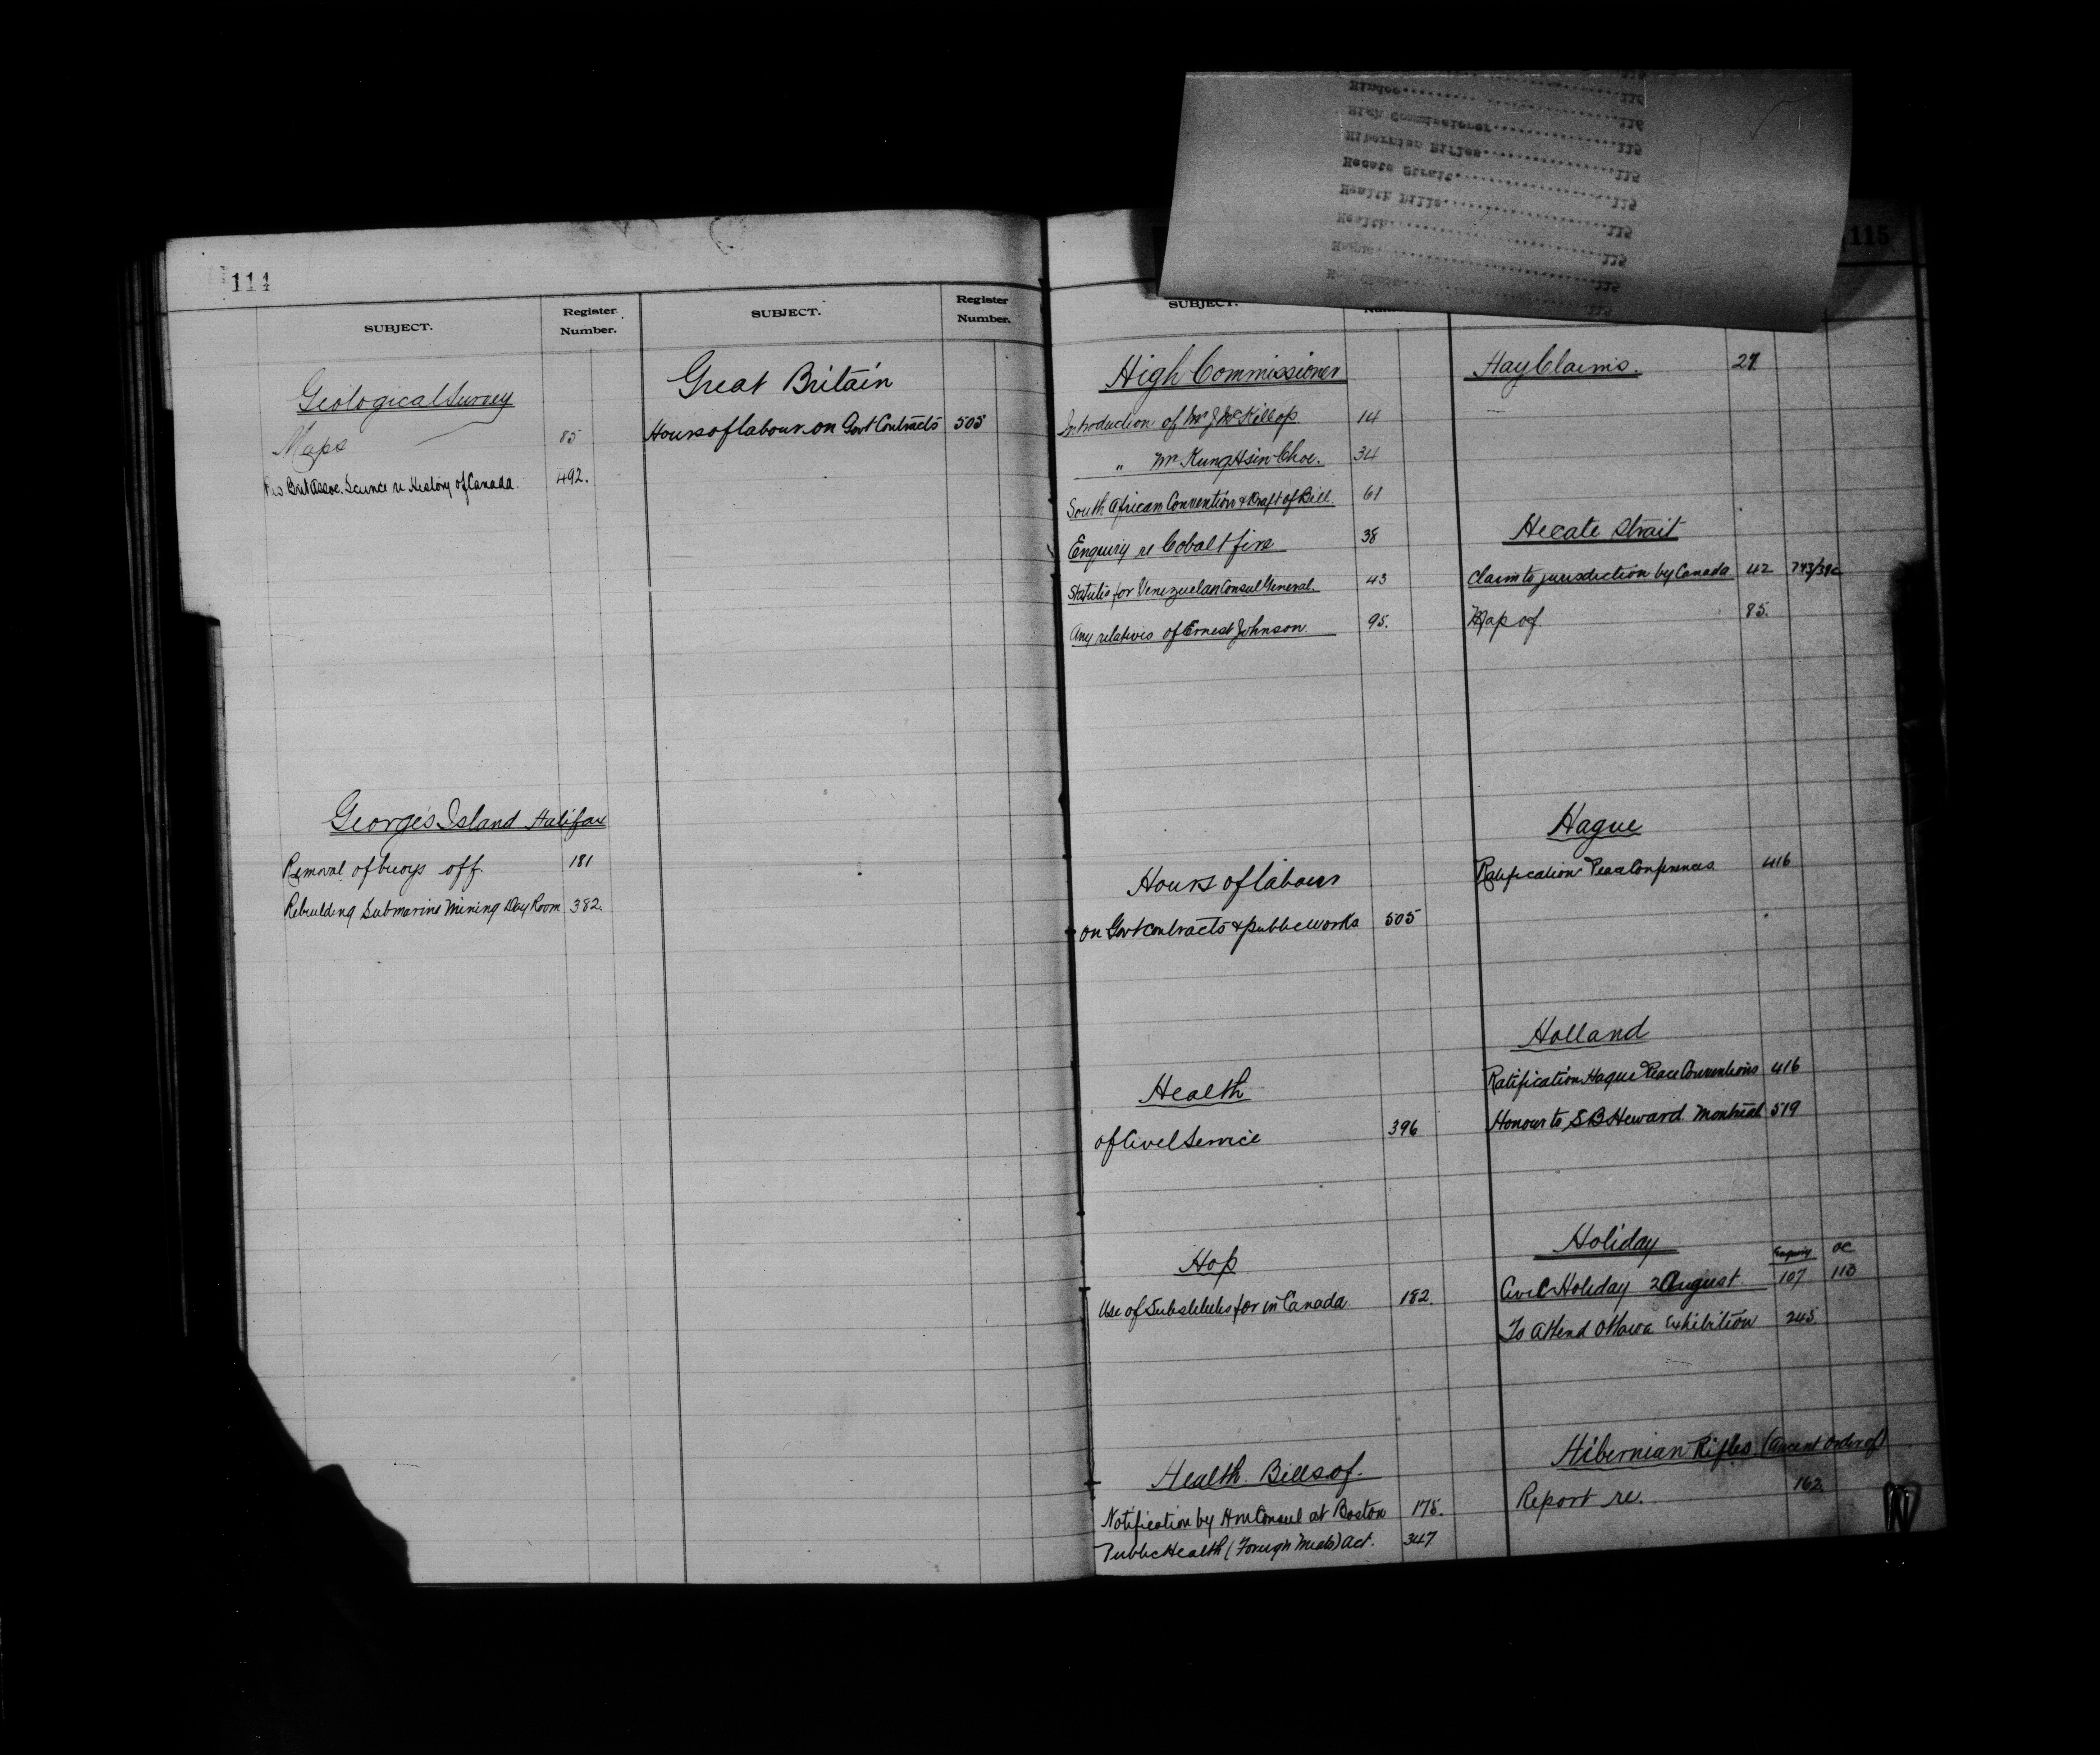 114
SUBJECT.
Register Number.
Geological Survey
Maps 85
Brit Assoc. Science re History of Canada. 492.
George's Island Halifax
Removal of buoys off. 181
Rebuilding Submarine Mining Day Room 382.
SUBJECT.
Register Number.
Great Britain
Hours of labour on Govt Contracts 505
115
SUBJECT.
High Commissioner
Introduction of Mr J McKillop. 14
" Mr Kung Hsin Choe. 34
South African Convention & Draft of Bill. 61
Enquiry re Cobalt fire 38
Statutes for Venezuelan Consul General. 43
Any relatives of Ernest Johnson. 95.
Hours of labour
on Govt contracts & public works 505
Health
of Civil Service 396
Hop
Use of Substitutes for in Canada. 182.
Health. Bills of.
Notification by HM Consul at Boston 175.
Public Health (Foreign Meats) Act. 347
Hay Claims. 27.
Hecate Strait
Claim to jurisdiction by Canada 42 743/39c
Map of. 85.
Hague
Ratification Peace Conferences. 416
Holland
Ratification Hague Peace Conventions 416
Honour to S B Heward. Montreal 519
Holiday
Enquiry OC
Civic Holiday 2 August. 107 113
To attend Ottawa Exhibition 245.
Hibernian Rifles (Ancient Order of)
Report re. 162.
Hindoo 116
High Commissioner 115
Hibernian Rifles 115
Hecate Strait 115
Health Bills 115
Health 115
Hague 115